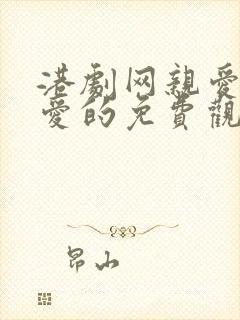 港劇网親愛
愛的免費觀
昂山